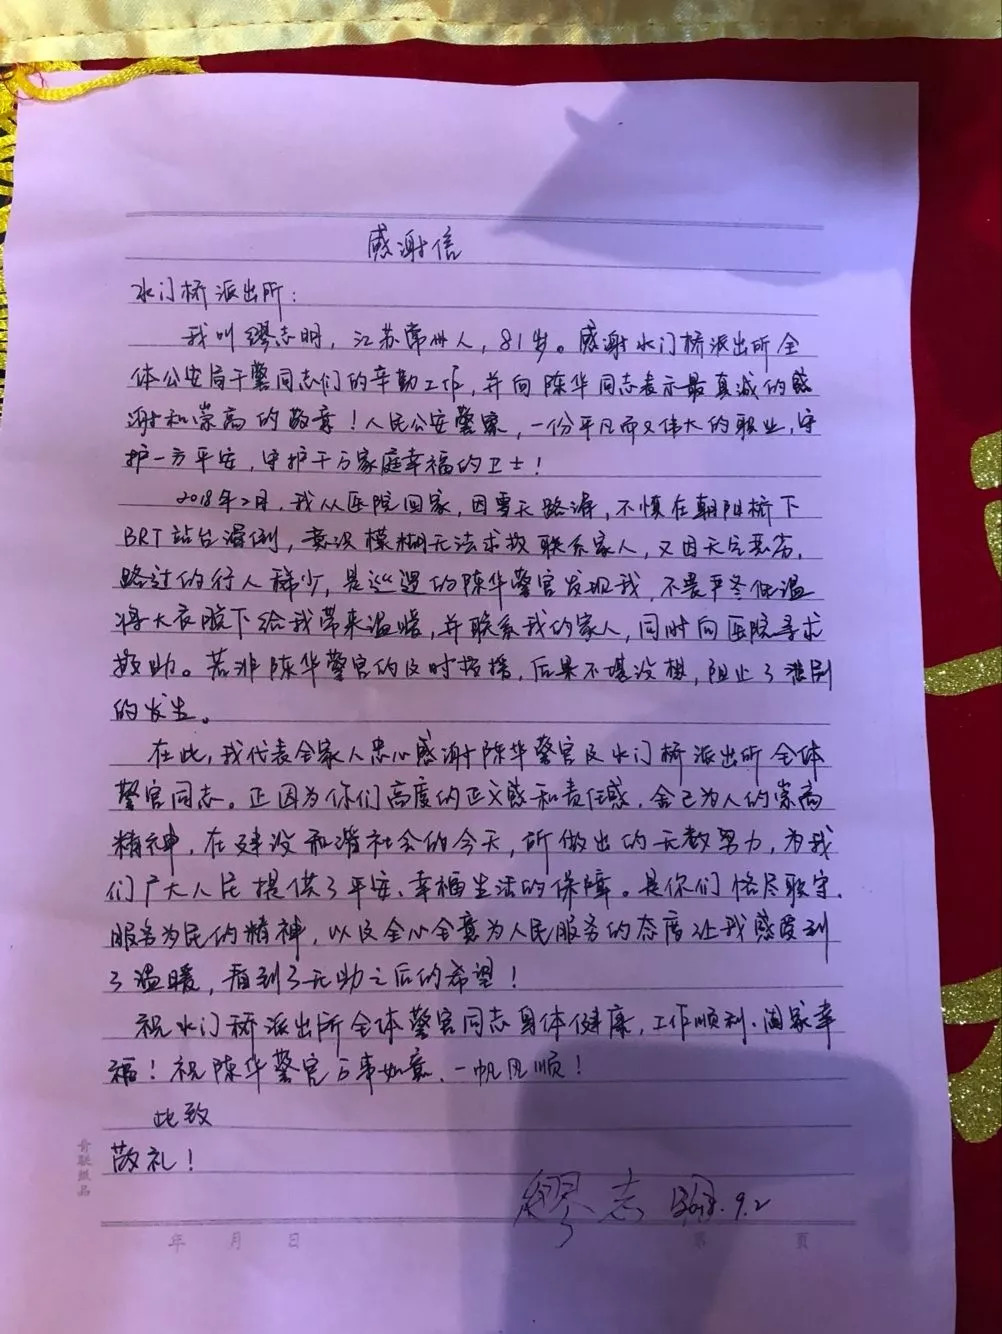 感谢信
水门桥派出所：
我叫缪志明，江苏常州人，81岁。感谢水门桥派出所全
体公安局干警同志们的辛勤工作，并向陈华同志表示最真诚的感
谢和崇高的敬意！人民公安警察，一份平凡而又伟大的职业，守
护一方平安，守护千万家庭幸福的卫士！
2018年2月，我从医院回家，因雪天路滑，不慎在朝阳桥下
BRT站台滑倒，意识模糊无法求救联系家人，又因天气恶劣，
路过的行人稀少，是巡逻的陈华警官发现我，不畏严冬低温
将大衣脱下给我带来温暖，并联系我的家人，同时向医院寻求
救助。若非陈华警官的及时救援，后果不堪设想，阻止了悲剧
的发生。
在此，我代表全家人忠心感谢陈华警官及水门桥派出所全体
警官同志。正因为你们高度的正义感和责任感，舍己为人的崇高
精神，在建设和谐社会的今天，所做出的无数努力，为我
们广大人民提供了平安、幸福生活的保障。是你们恪尽职守，
服务为民的精神，以及全心全意为人民服务的态度让我感受到
了温暖，看到了无助之后的希望！
祝水门桥派出所全体警官同志身体健康，工作顺利、阖家幸
福！祝陈华警官万事如意、一帆风顺！
此致
敬礼！
缪志明 2018.9.2
年 月 日 第 页